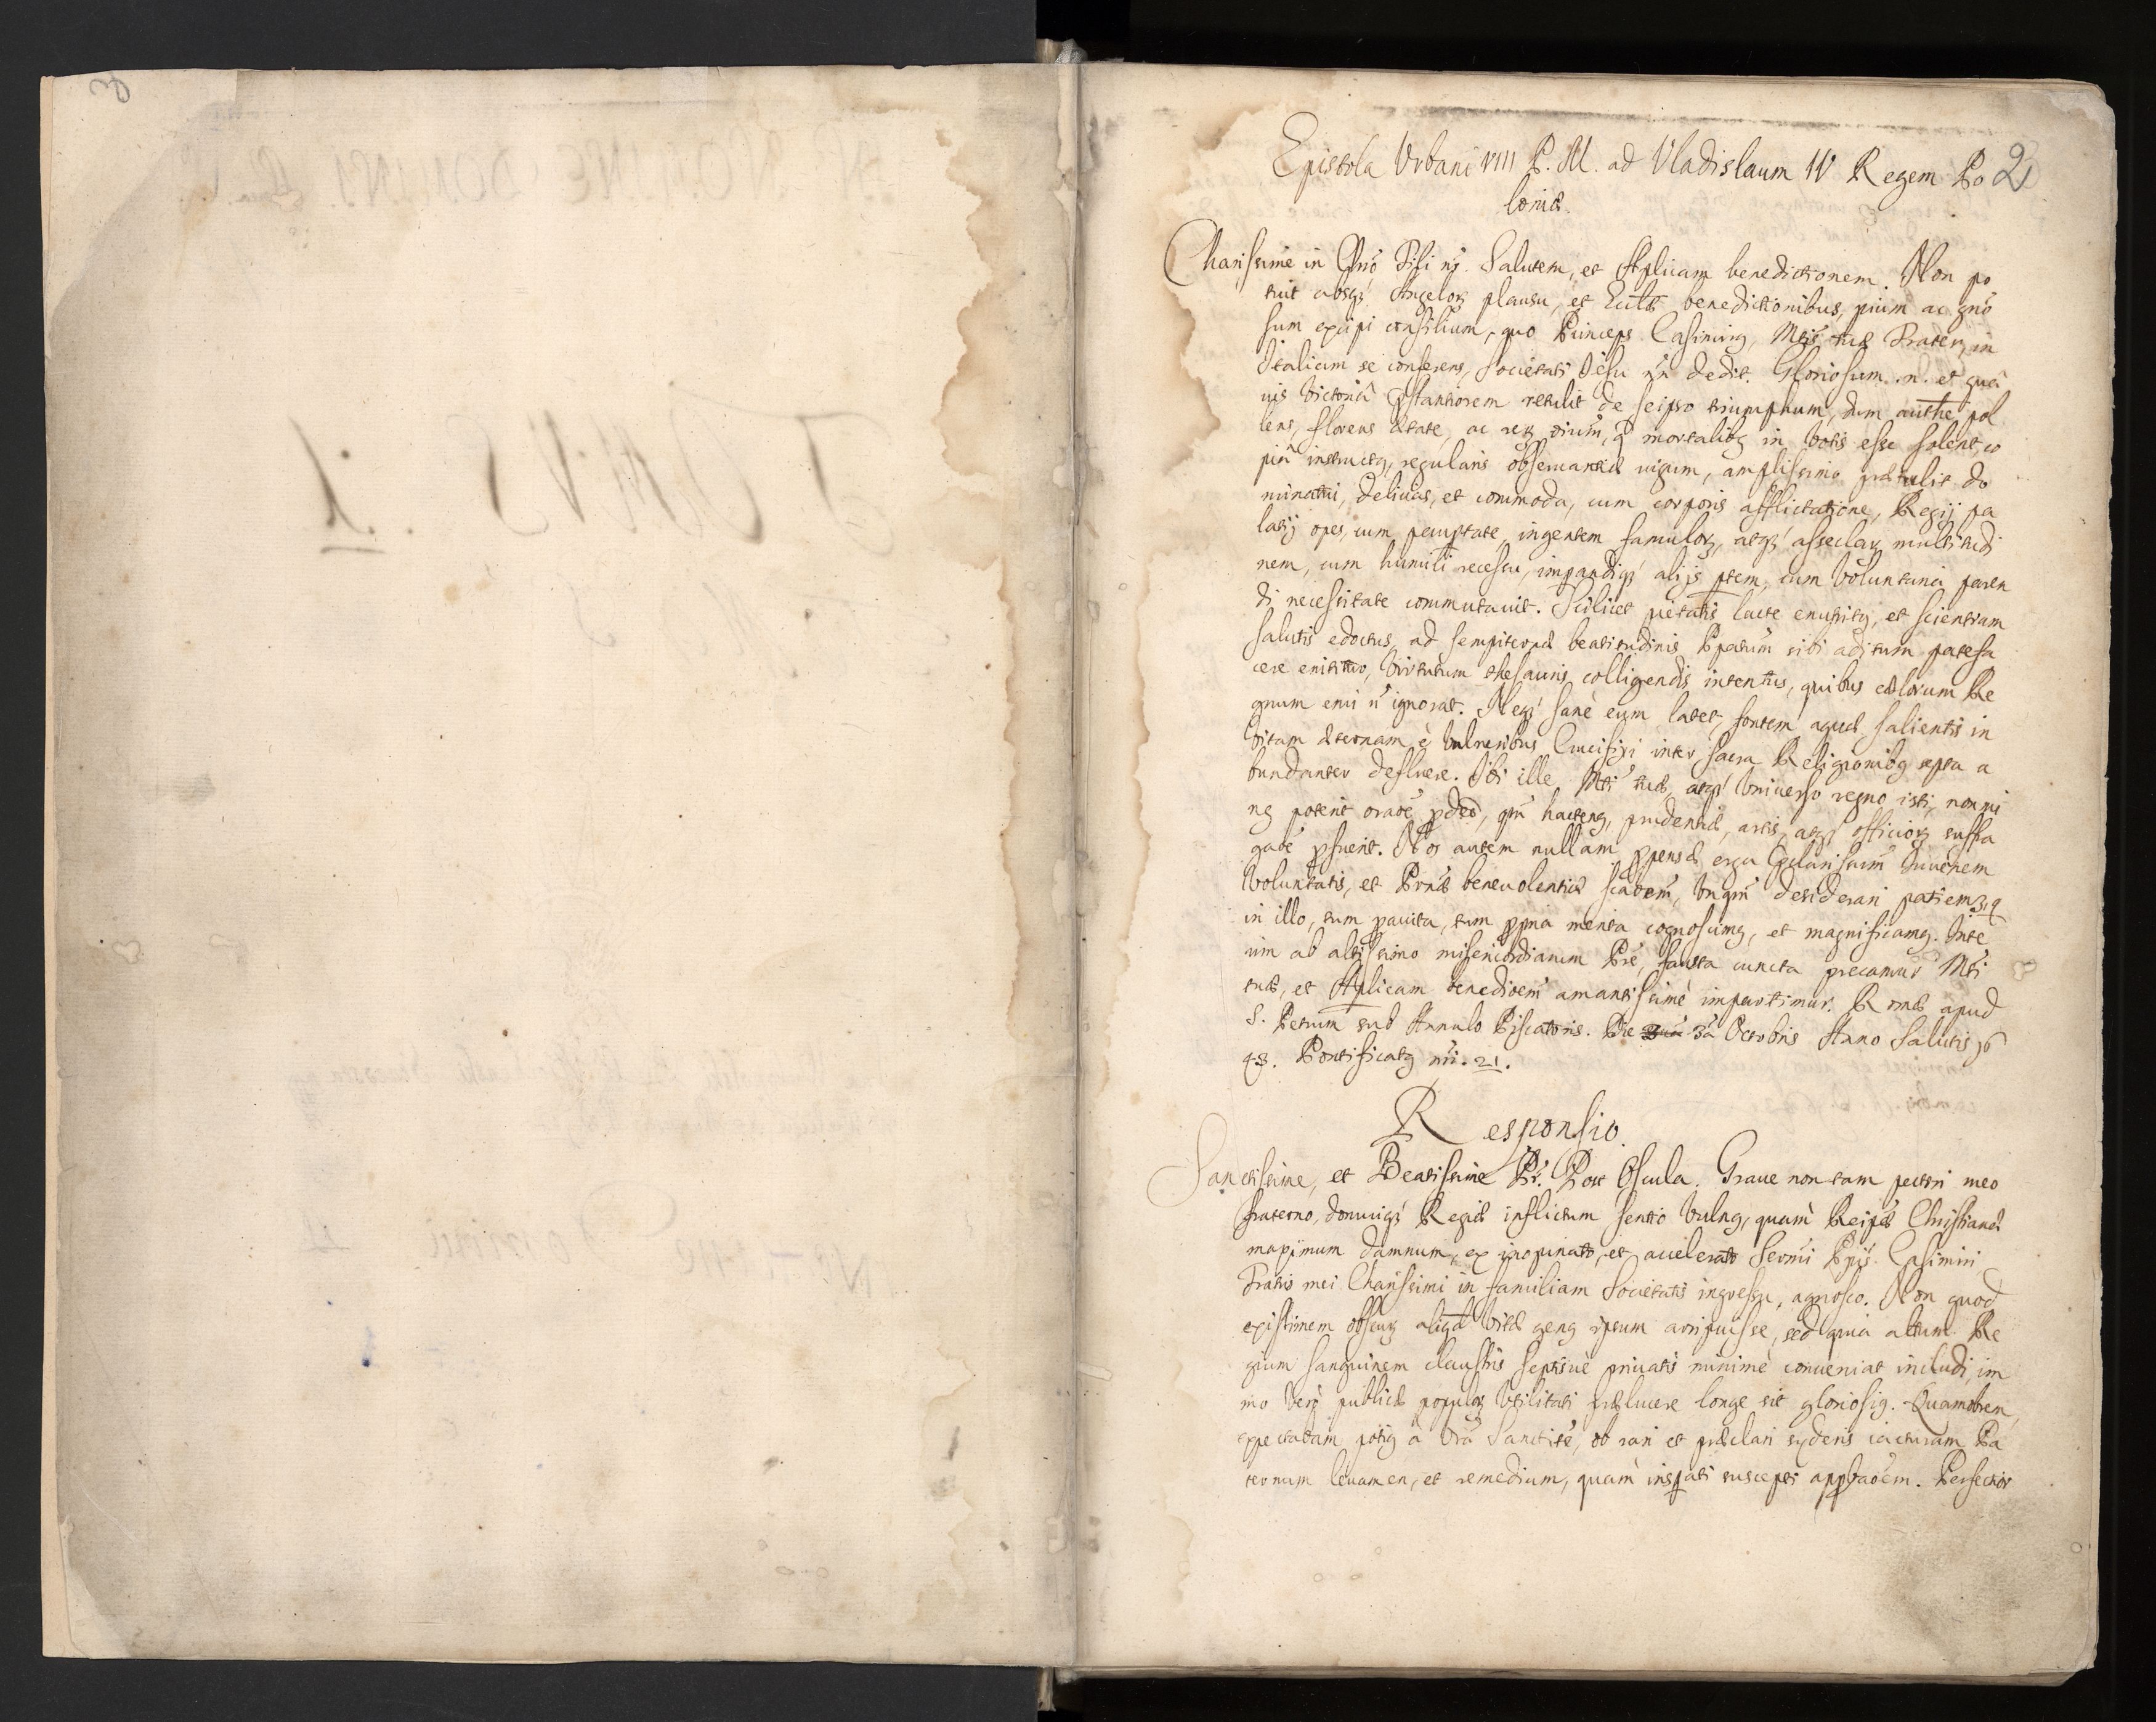 Epistola Urbani VIII P. M. ad Vladislaum IV Regem Po
loniæ.
2
Charissime in Chr̃o Fili nr̃. Salutem, et Aplicam benedictionem. Non po
tuit absq́; Angeloꝝ plausu, et Eccl̃æ benedictionibus, pium ac gñõ
sum excipi consilium, quo Princeps Casimirꝰ, Mtis tuæ Frater, in
Italiam se conferens, Societati Jesu dedit. Gloriosum .n. et quã
uis Victoriâ p̃stantiorem retulit de seipso triumphum, dum pol
lens, florens ætate, ac reꝝ oium̃, q̃ mortalibꝰ in Votis esse solent, co
piâ instructꝰ, regularis obseruantiæ iugum, amplissimo prætulit do
minatui, delicias, et commoda, cum corporis afflictatione, Regij pa
latij opes, cum paupertate, ingentem famuloꝝ, atq́; asseclaꝝ multitudi
nem, cum humili recessu, imperandiq́; alijs ptem, cum Voluntaria paren
di necessitate commutauit. Scilicet pietatis lacte enutritꝰ, et scientiam
salutis edoctus, ad sempiternæ beatitudinis Ppatum sibi aditum patefa
cere enititur, Virtutum thesauris colligendis intentus, quibus cælorum Re
gnum emi ñ ignorat. Neq́; sanè eum latet, fontem aquæ salientis in
Vitam æternam è Vulneribus Crucifixi inter sacra Religionibꝰ septa a
bundanter defluere. Ibi ille Mti tuæ, atq́; Vniuerso regno isti, non mi
nꝰ poterit oraoẽ, qm̃ hactenꝰ, prudentiæ, artis, atq́; officioꝝ suffra
gaoẽ p̃fuerit. Nos autem nullam p̱pensæ erga Præclarissim̃ Juuenem
Voluntatis, et Prnæ beneuolentiæ Vnqm̃ desiderari patiemur, q̃
in illo, tum p̱auita, tum p̱pria merita cognoscimꝰ, et magnificamꝰ. Inte
rim ab altissimo misericordiarum Prẽ, fausta cuncta precamur Mti
tuæ, et Aplicam benedictem̃ amantissimè impartimur. Romæ apud
S. Petrum sub Annulo Piscatoris. Die 3ã Octobris Anno Salutis 16
43. Pontificatꝰ nri. 21.
Responsio.
Sanctissime, et Beatissime Pr̃. Post Oscula. Graue non tam pectori meo
fraterno, domuiq́; Regiæ inflictum sentio Vulnꝰ, quàm Reipæ Christianæ
maximum damnum, ex inopinato, et accelerato Sermi Ppis. Casimiri
Fratris mei Charissimi in familiam Societatis ingressu, agnosco. Non quod
existimem obscuꝝ aliqd̃ Vitæ genꝰ ipsum arripuisse, sed quia altum Re
gium sanguinem claustris septisuè priuatis minimè conueniat includi, im
mo Verò publicæ populoꝝ Vtilitati prælucere longe sit gloriosiꝰ. Quamobrem,
expectabam potiꝰ à Vrã Sanctite, ob rari et præclari syderis iacturam Pa
ternum leuamen, et remedium, quàm insperati suscepti app̱baoẽm. Perfectior